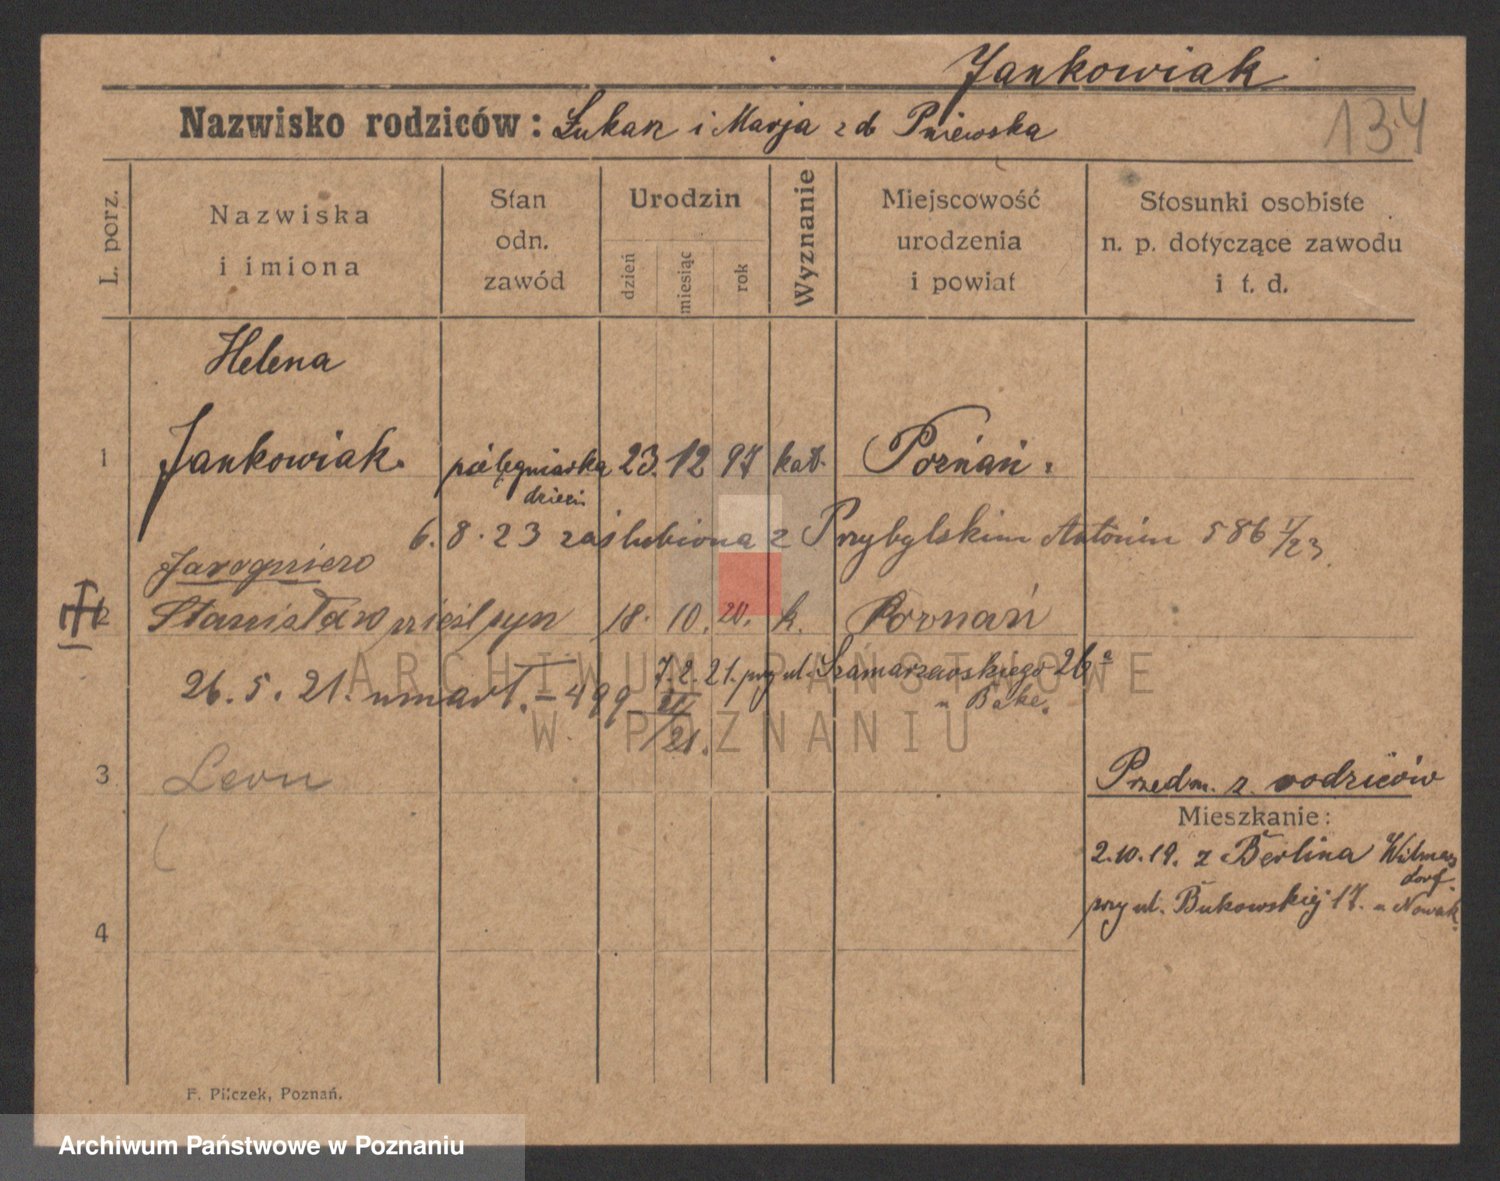 Jankowiak
134
Nazwisko rodziców: Łukasz i Marja z d. Pniewska
L. porz.
Nazwiska
i imiona
Stan
odn.
zawód
Urodzin
dzień
miesiąc
rok
Wyznanie
Miejscowość
urodzenia
i powiat
Stosunki osobiste
n. p. dotyczące zawodu
i t. d.
Helena
1 Jankowiak. pielęgniarka 23. 12 97 kat. Poznań.
dzieci
6. 8. 23 zaślubiona z Przybylskim Antonim 586 V/23
Jarogniew
2 Stanisław nieśl syn 18. 10. 20. k. Poznań
7. 2. 21. przy ul. Szamarzewskiego 26a
26. 5. 21. umarł. – 499 – II/21.
u Bake.
3 Leon
Przedm. z. rodziców
Mieszkanie:
2. 10. 19. z Berlina Wilmers
dorf.
przy ul. Bukowskiej 17. u Nowak.
4
F. Pilczek, Poznań.
ARCHIWUM PAŃSTWOWE
W POZNANIU
Archiwum Państwowe w Poznaniu